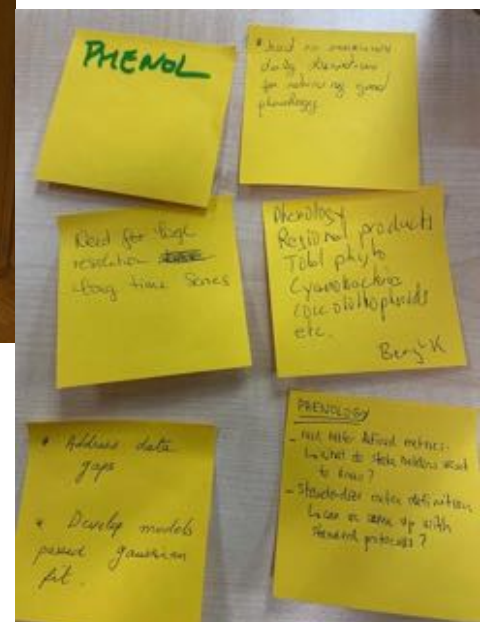 PHENOL
daily
for good
phenology
Need for high
resolution
long time series
Phenology
Regional products
Total phyto
Cyanobacteria
coccolithophorids
etc.
* Address data
gaps
* Develop models
gaussian
fit.
PHENOLOGY
- defined metrics
what do stake holders want
to know?
- Standardise definition
come up with
standard protocols?